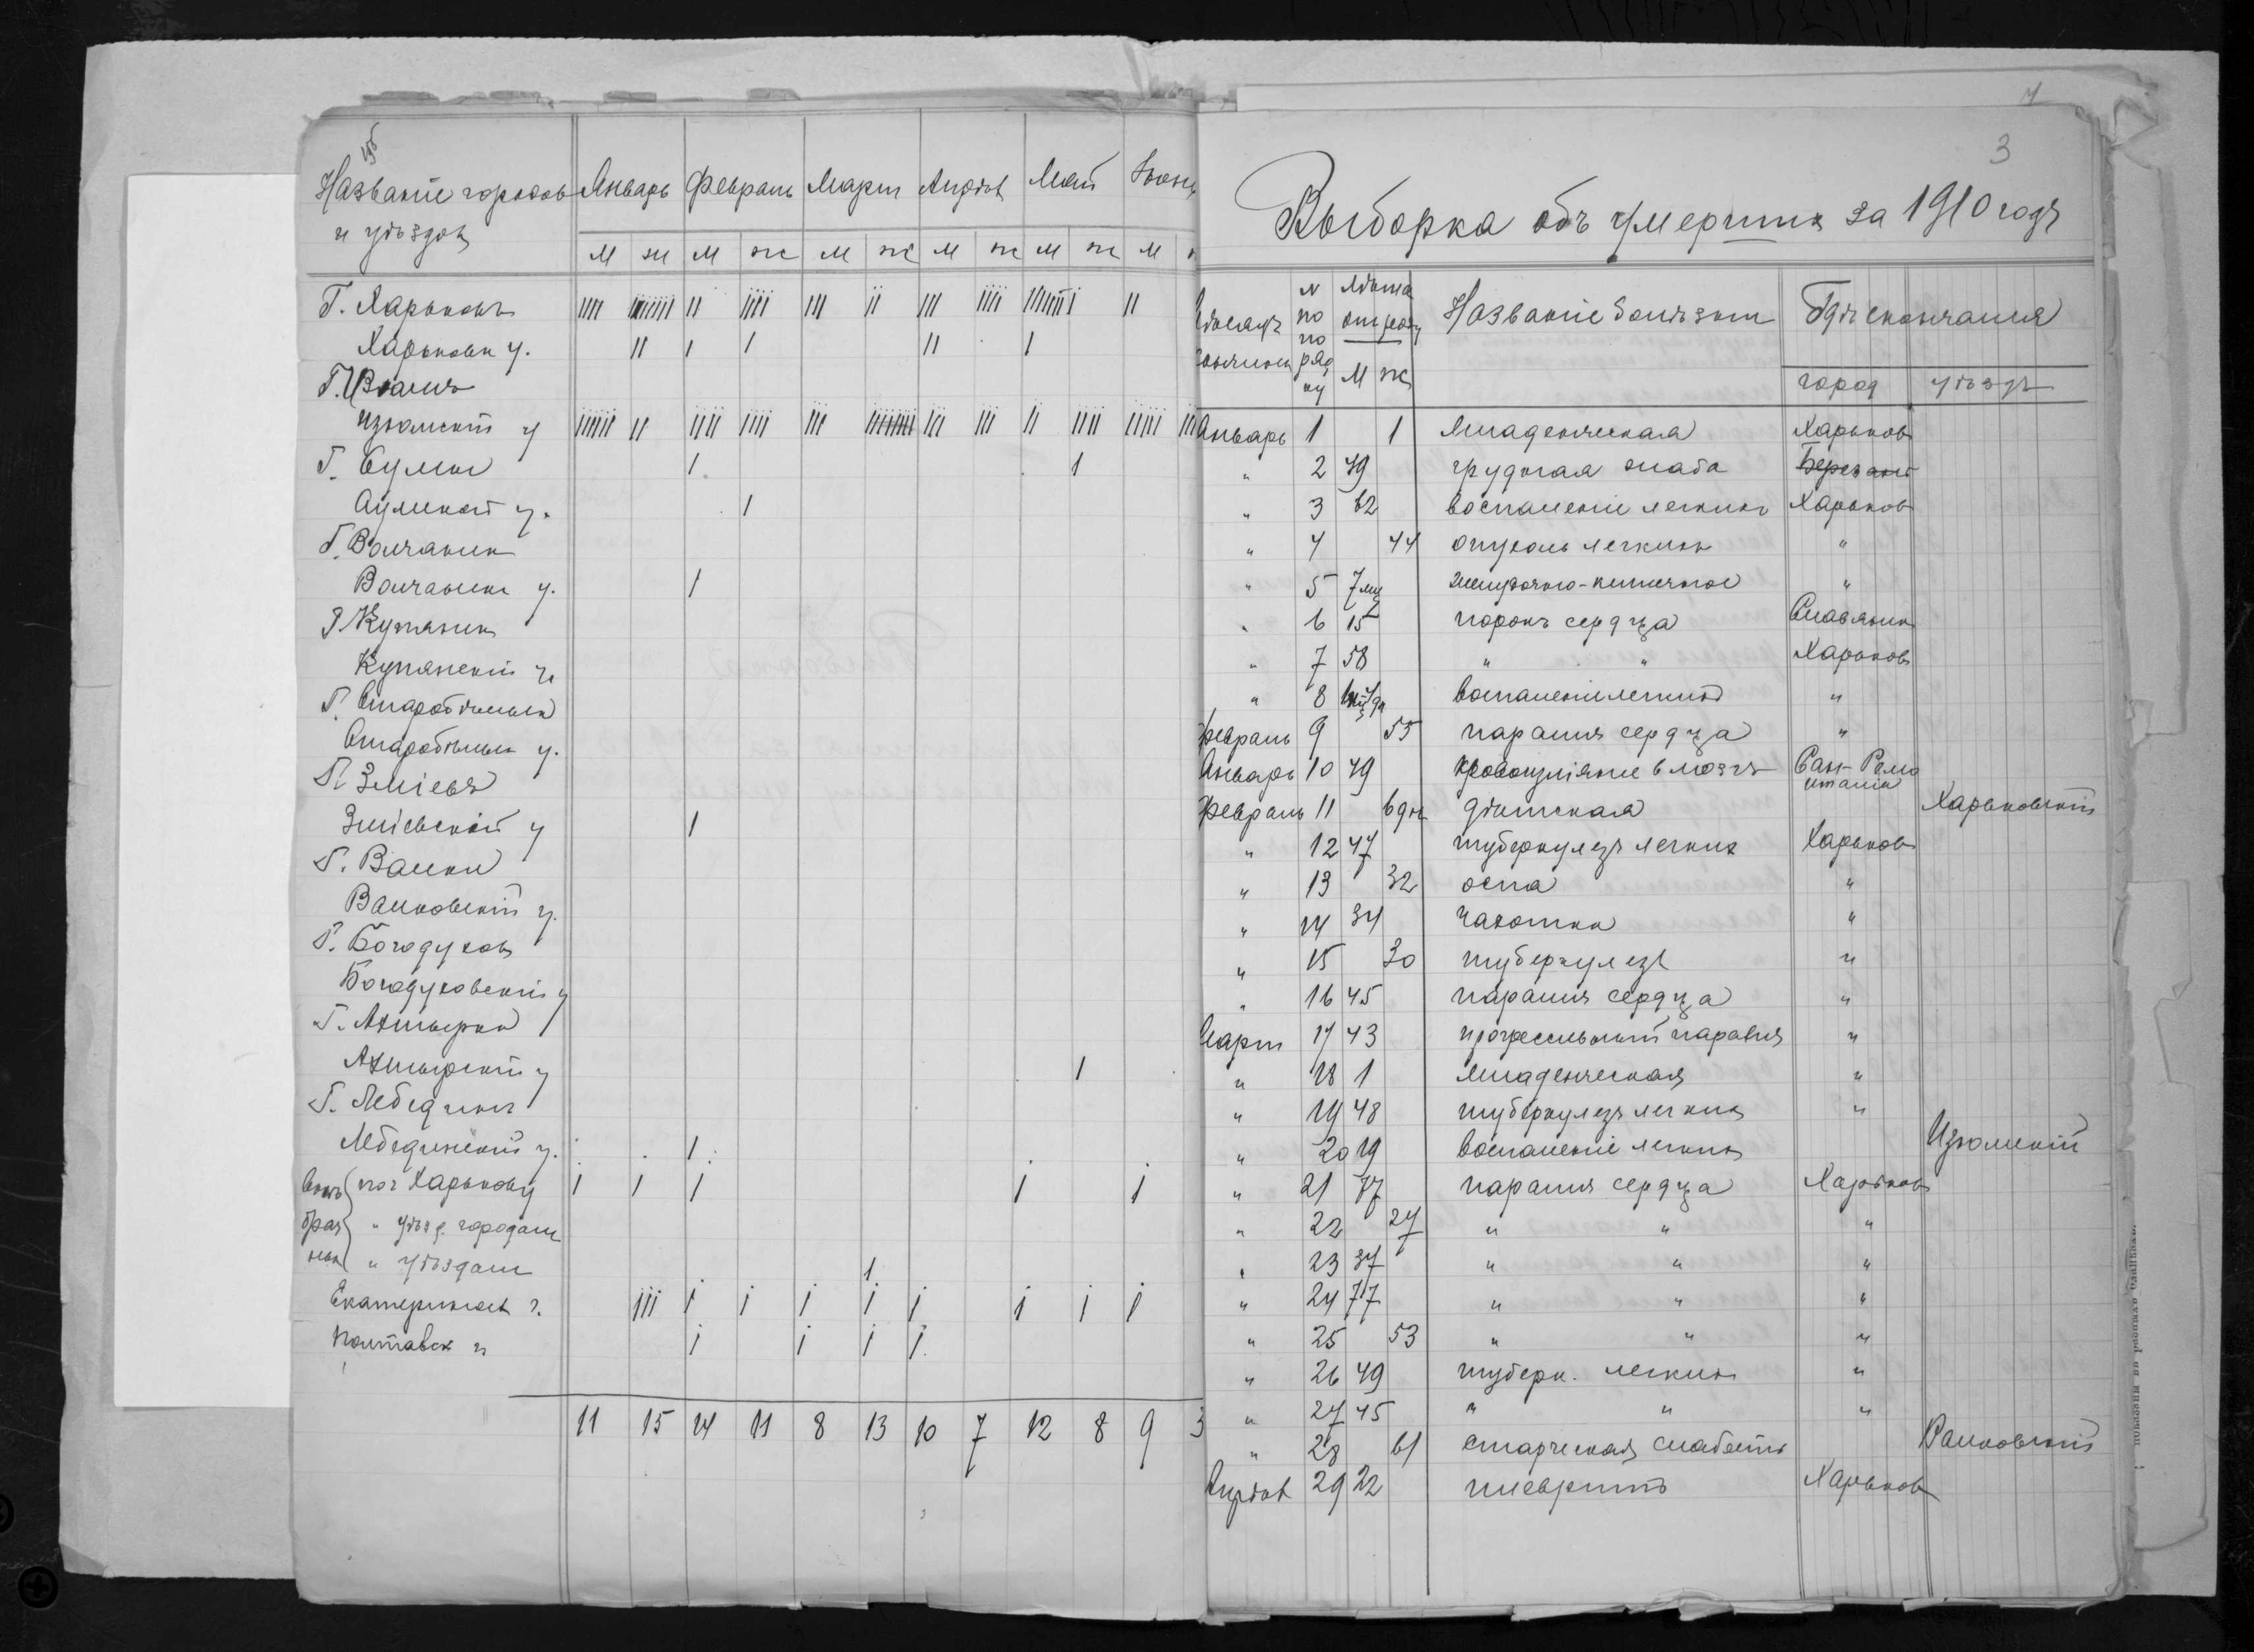 Названіе городов
и уѣздов
Январь Февраль Март Апрѣль Май Іюнь
м ж м ж м ж м ж м ж м
Г. Харьковъ
Харьковск у.
Г. Изюмъ
Изюмский у
Г. Сумы
Сумской у.
Г. Волчанск
Волчанск у.
Г. Купянск
Купянскій у.
Г. Старобѣльск
Старобѣльск у.
Г. Зміевъ
Зміевской у
Г. Валки
Валковскій у.
Г. Богодухов
Богодуховскій у
Г. Ахтырка
Ахтырский у
Г. Лебедин
Лебединский у.
по г Харькову
" уѣзд. городам
" уѣздам
Екатеринос г.
Полтавск г
11 15 14 11 8 13 10 7 12 8 9 3
3
Выборка объ умерших за 1910 годъ
N по порядку
Лѣта
м ж
Названіе болѣзни
Гдѣ скончался
город уѣздъ
Январь 1 1 младенческая Харьков
" 2 49 грудная жаба Березань
" 3 62 воспаленіе легких Харьков
" 4 44 опухоль легких "
" 5 7 мц желудочно-кишечное "
" 6 15 порокъ сердца Славянск
" 7 58 " " Харьков
" 8 воспаленіе легкий "
Февраль 9 55 паралич сердца "
Январь 10 49 кровоизліяние в мозгъ Сан-Ремо Италія
Февраль 11 6 дн дѣтская Харьковский
" 12 47 туберкулезъ легких Харьков
" 13 32 оспа "
" 14 34 чахотка "
" 15 30 туберкулез "
" 16 45 паралич сердца "
Март 17 43 прогрессивный паралич "
" 18 1 младенческая "
" 19 48 туберкулезъ легких "
" 20 19 воспаленіе легких Изюмский
" 21 77 паралич сердца Харьков
" 22 27 " " "
" 23 37 " " "
" 24 77 " " "
" 25 53 " " "
" 26 49 туберк. легких "
" 27 45 " " "
" 28 61 старческая слабость Валковский
Апрѣль 29 22 плевритъ Харьков